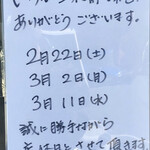 ありがとうございます。
2月22日(土)
3月 2日(月)
3月 11日(水)
誠に勝手ながら
とさせて頂きます